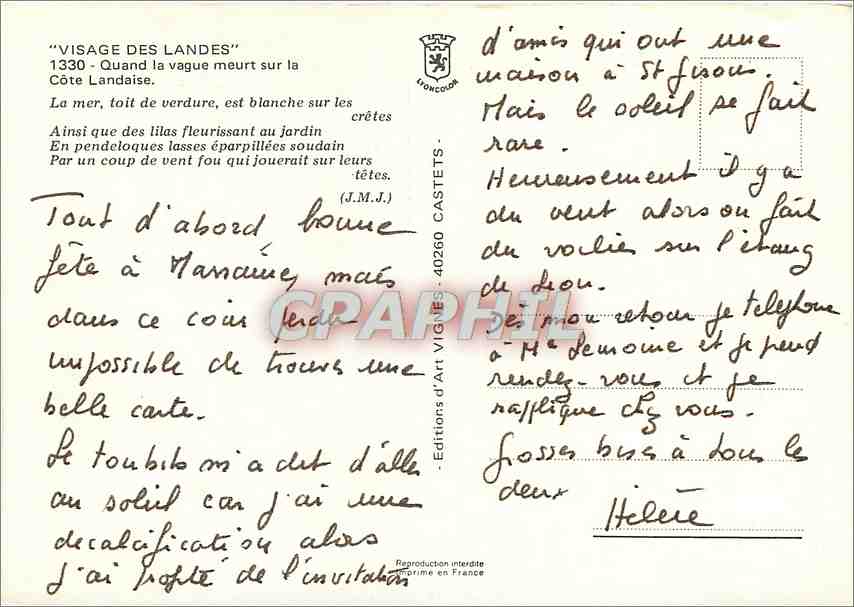 "VISAGE DES LANDES"
1330 - Quand la vague meurt sur la
Côte Landaise.
La mer, toit de verdure, est blanche sur les
crêtes
Ainsi que des lilas fleurissant au jardin
En pendeloques lasses éparpillées soudain
Par un coup de vent fou qui jouerait sur leurs
têtes.
(J.M.J.)
Tout d'abord, bonne
fête à mais
dans ce coin perdu
impossible de trouver une
belle carte.
Le toubib m'a dit d'aller
au soleil car j'ai une
decalcification alors
j'ai profité de l'invitation
LYONCOLOR
- Editions d'Art VIGNES - 40260 CASTETS -
Reproduction interdite
Imprimé en France
d'amis qui ont une
maison à St Girons.
Mais le soleil se fait
rare.
Heureusement il y a
du vent alors on fait
du voilier sur l'étang
de Léon.
Dès mon retour je telephone
à Me Lemoine et je prend
rendez-vous et je
rapplique chez vous.
Grosses bises à tous les
deux
Hélène
CPAPHIL